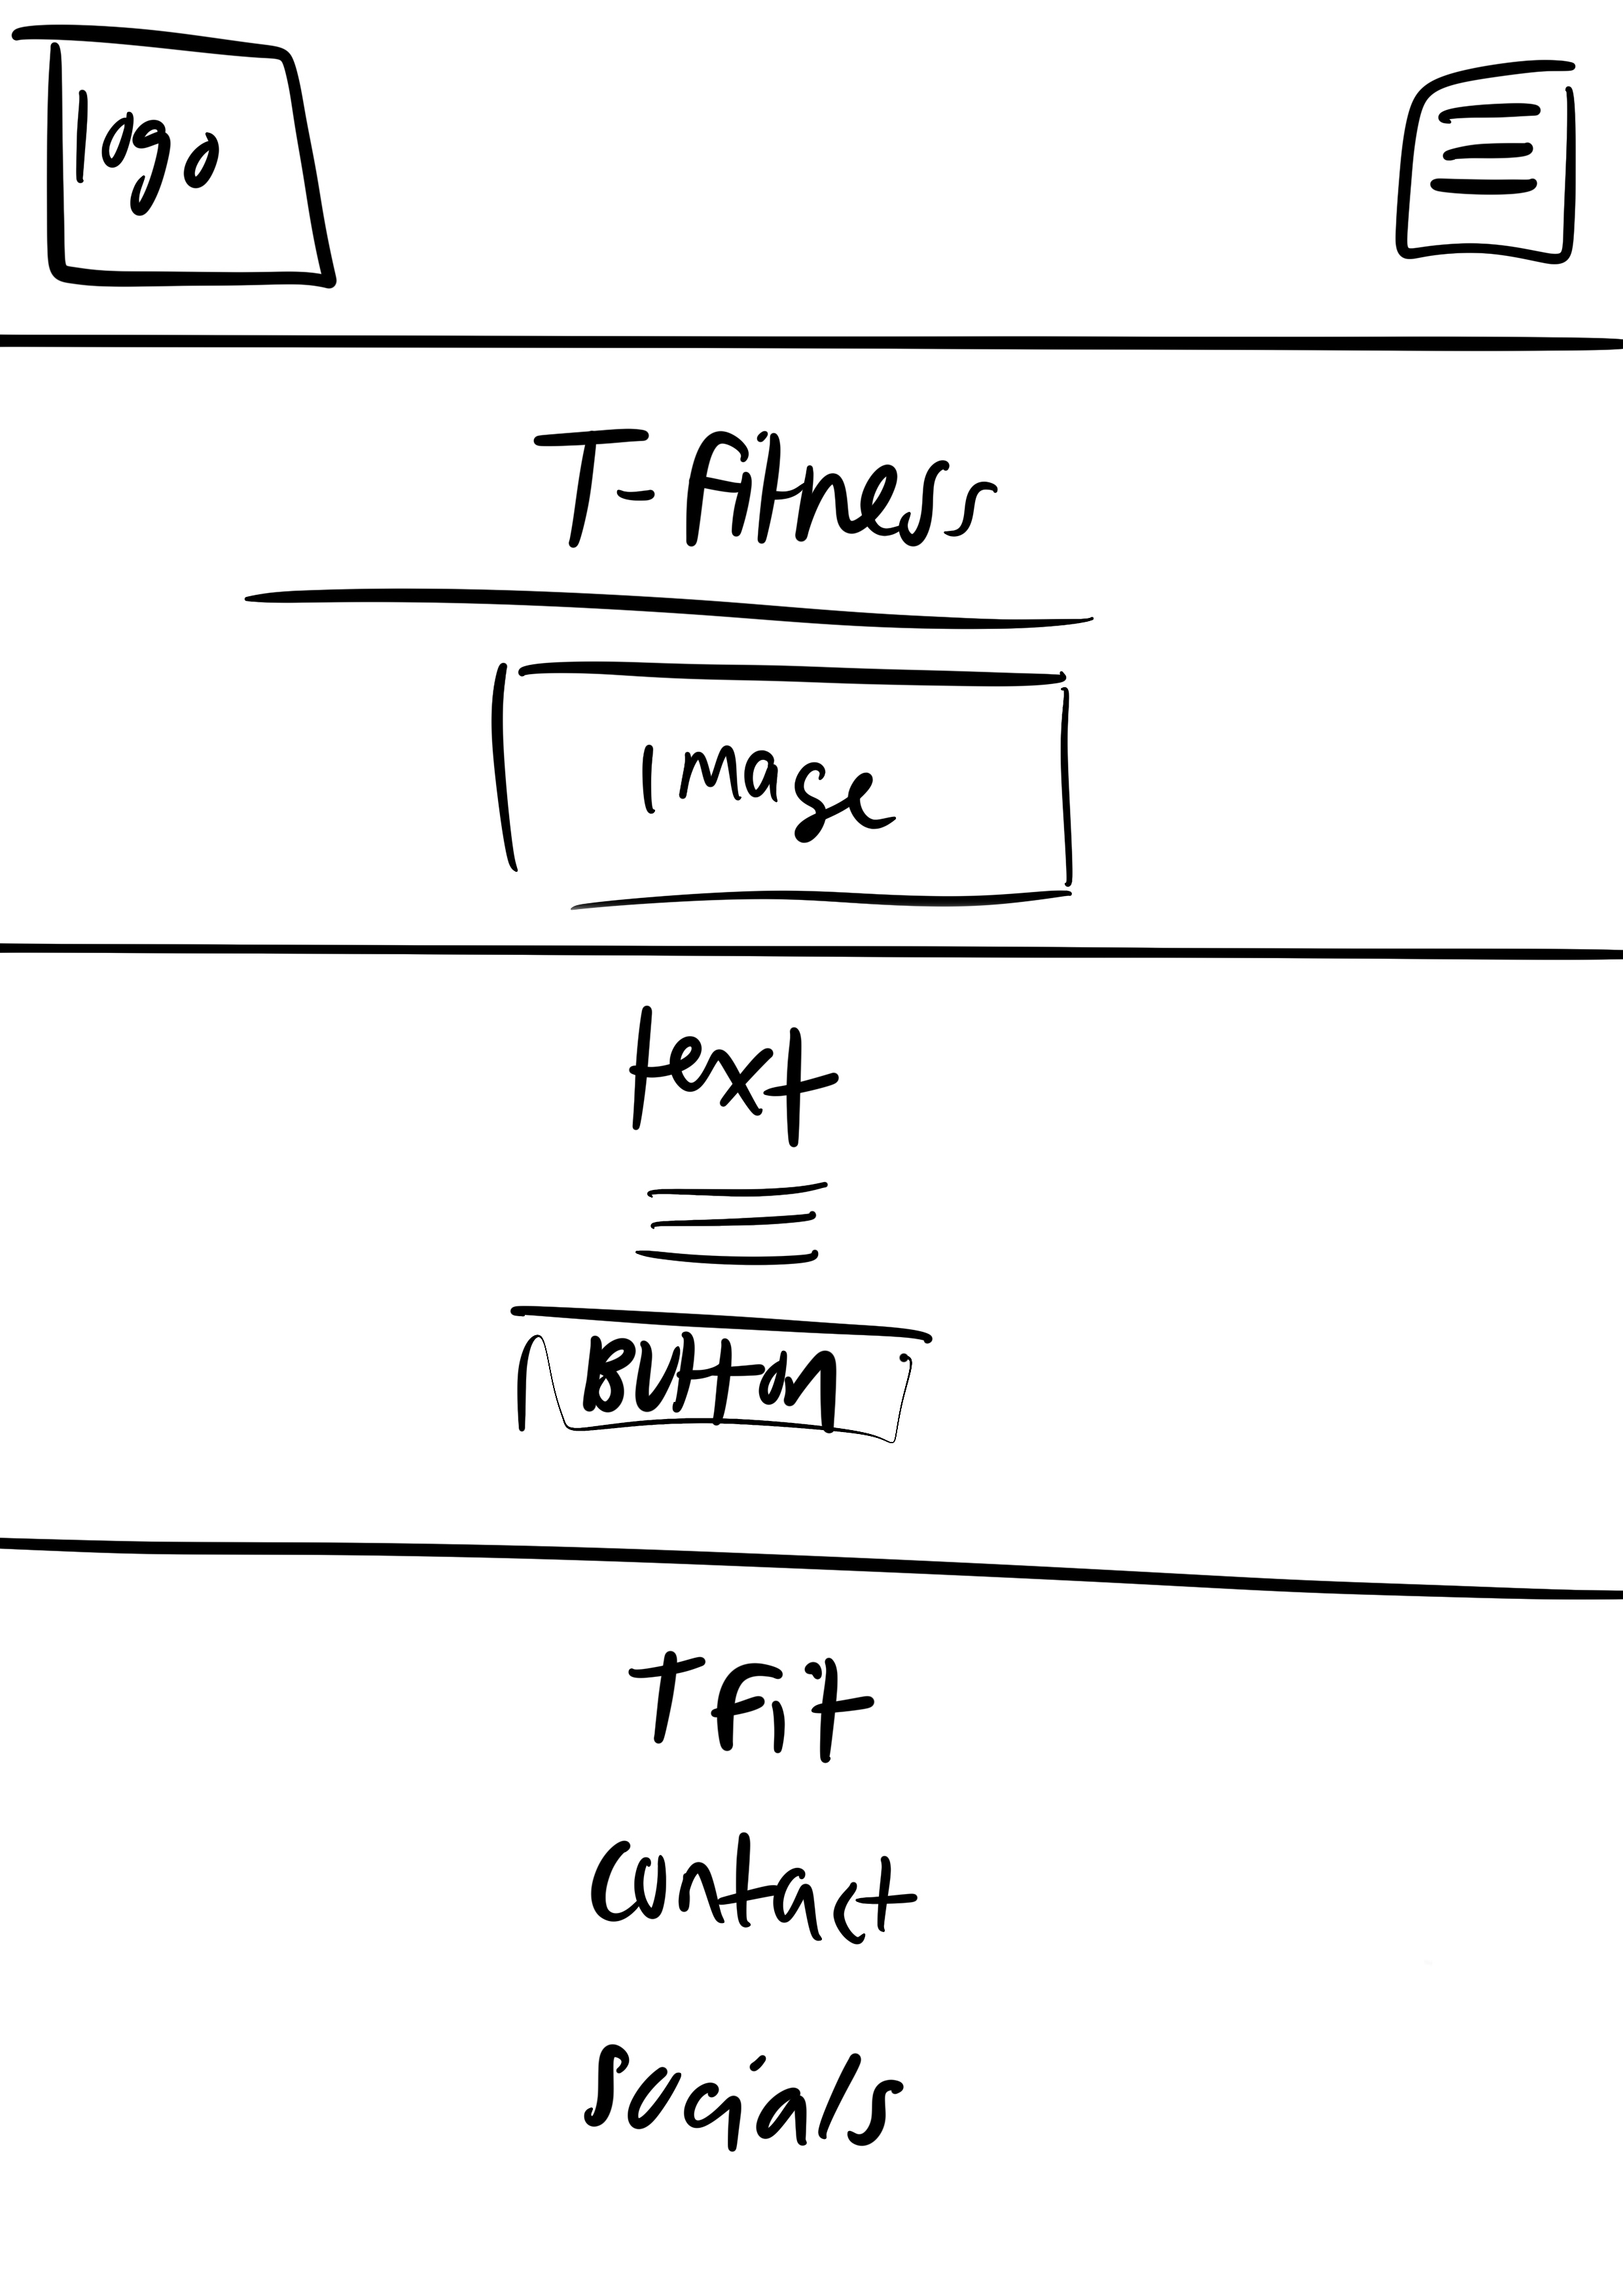 logo
T- fitness
Image
text
Button
T Fit
Contact
Socials